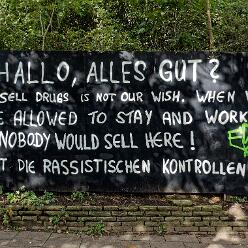 HALLO, ALLES GUT?
SELL DRUGS IS NOT OUR WISH. WHEN
ALLOWED TO STAY AND WORK
NOBODY WOULD SELL HERE!
DIE RASSISTISCHEN KONTROLLEN